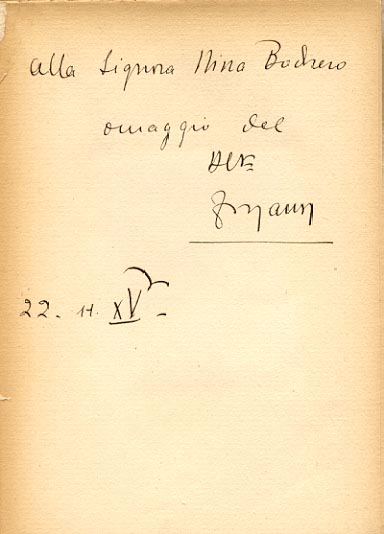 Alla Signora Nina Bodrero
omaggio del
22. 11. XV -